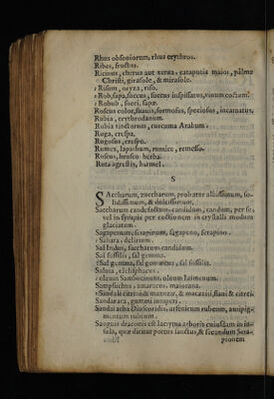 Rhus obsoniorum, rhus erythros.
Ribes, fructus.
Ricinus, cherua aut kerua, cataputia maior, palma
Christi, girasole, & mirasole.
Risom, oryza, riso.
Rob, sapa, succus, succus inspissatus, vinum coctum.
Robub, succi, sapæ.
Roseus color, suavis, formosus, speciosus, incarnatus.
Rubia, erythrodanum.
Rubia tinctorum, curcuma Arabum.
Ruga, crespa.
Rugosus, crespo.
Rumex, lapathum, rumice, remosso.
Ruscus, brusco herba.
Ruta agrestis, harmel.
S
SAccharum, zuccharum, probatur albissimum, so-
lidissimum, & dulcissimum.
Saccharum cande seu candum, candidum, per se,
vel in syrupis per coctionem in crystalli modum
glaciatum.
Sagapenum, serapinum, sagapeno, serapino.
Sahara, delirium.
Sal Indus, saccharum candidum.
Sal fossilis, sal gemma.
Sal gemma, sal gemmeus, sal fossilis.
oleum Sambucinum
Sampsuchus, amaracus, maiorana.
Sandaraca, gummi iuniperi.
Sandaracha Dioscoridis, arsenicum rubeum, auripig-
mentum rubeum.
Sanguis draconis est lacryma arboris cuiusdam in insu-
la, quæ dicitur portus sanctus, & secundum Sera-
pionem